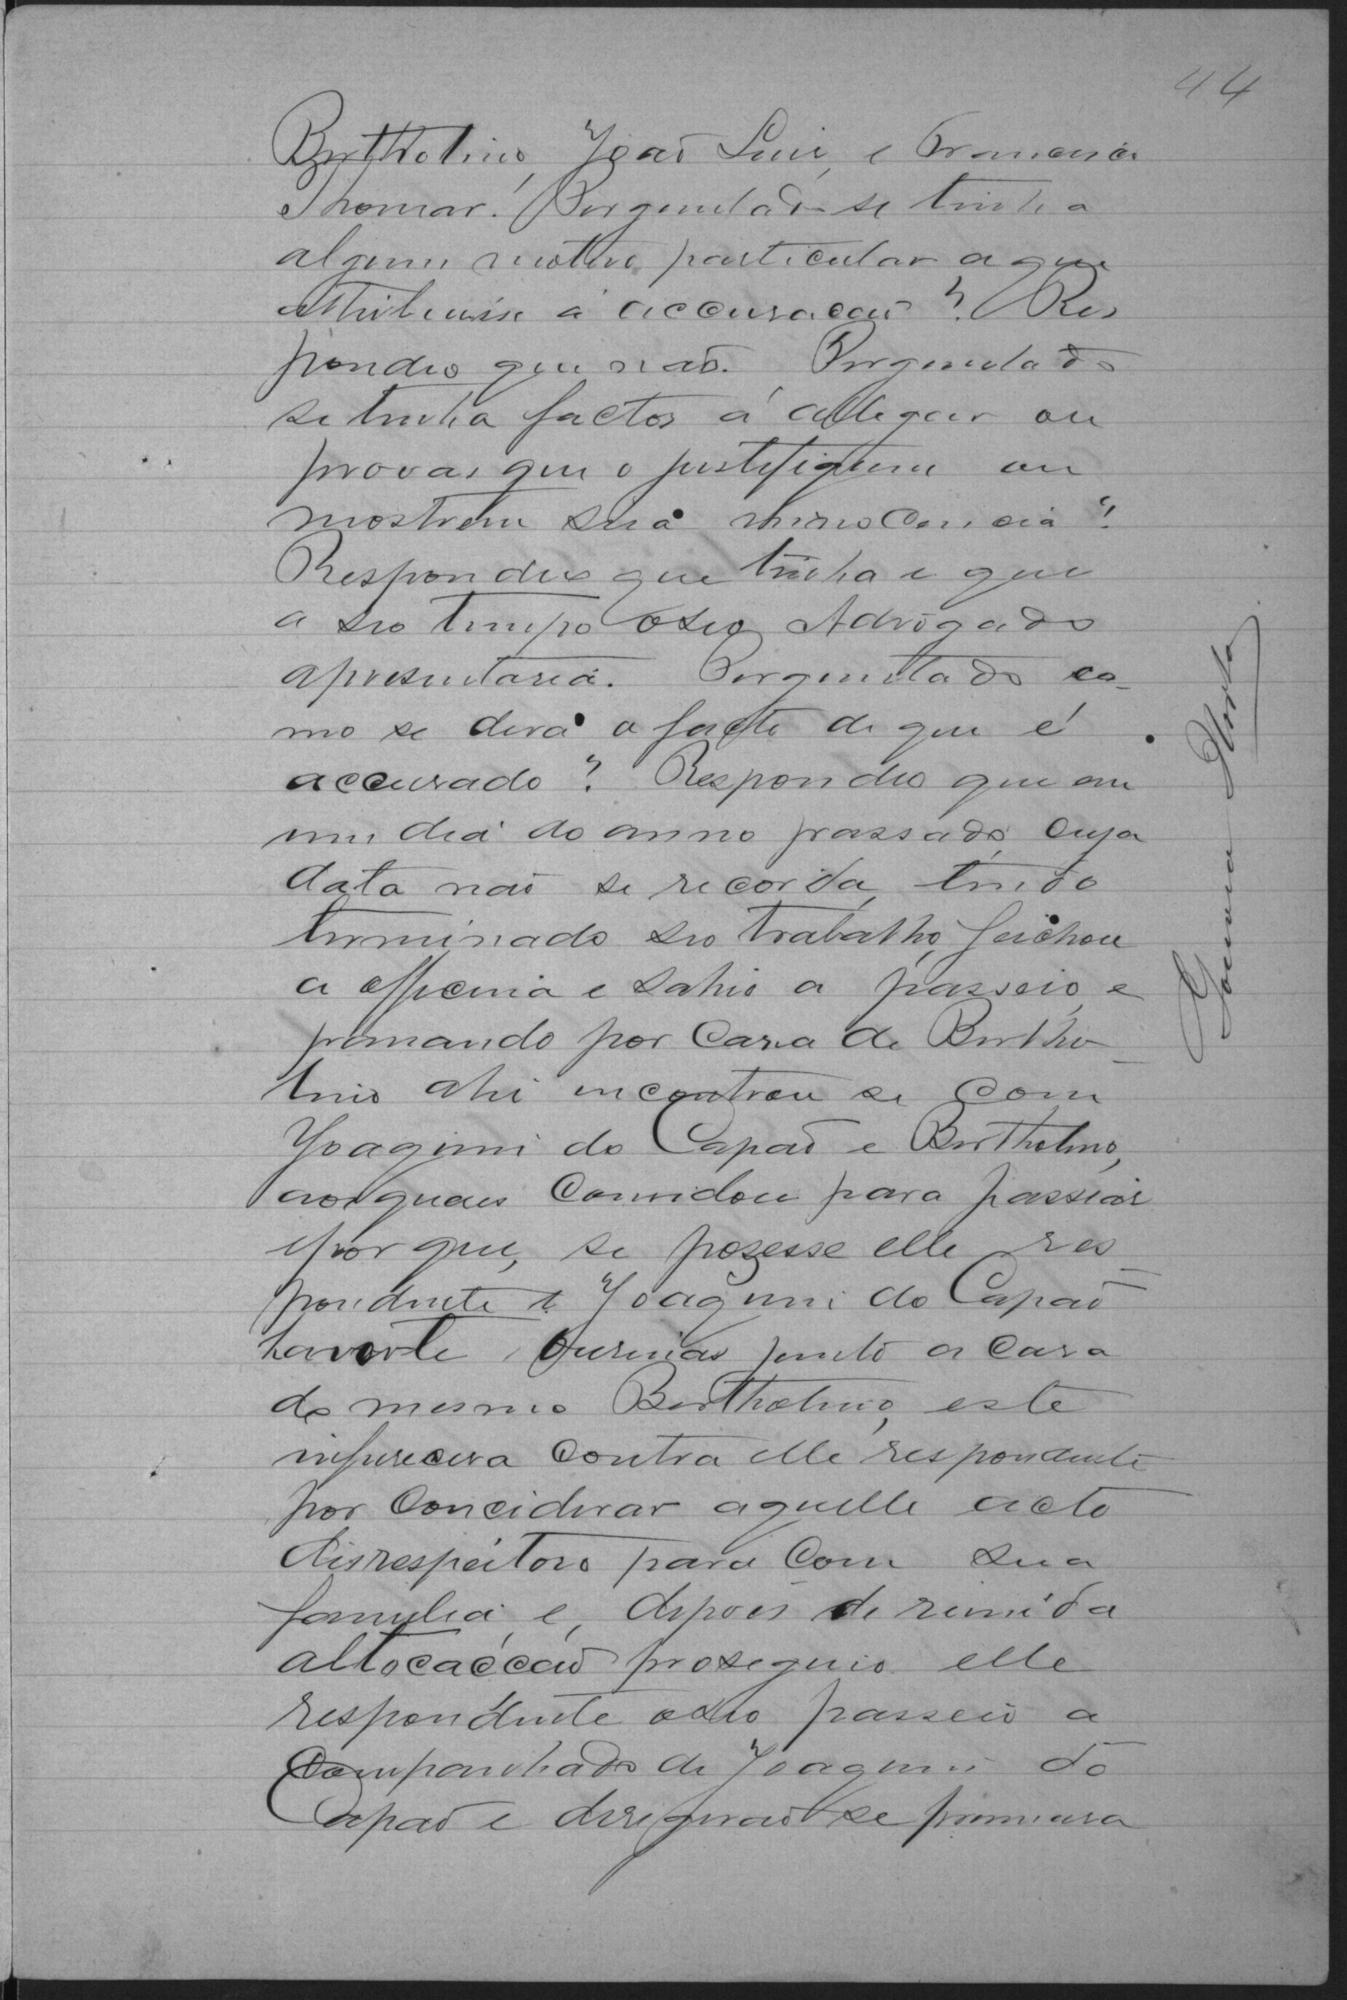 44
Bertholino, João Luiz, e Francisco
Thomaz. Perguntado se tinha
algum motivo particular a que
attribuisse á accusacaõ? Res
pondeo que naõ. Perguntado
se tinha factos á allegar ou
provas que o justifiquem ou
mostrem sua innocencia?
Respondeo que tinha e que
a seo tempo o seo Advogado
apresentaria. Perguntado co-
mo se dera o facto de que é
accusado? Respondeo que em
um dia do anno passado, cuja
data naõ se recorda, tendo
terminado seo trabalho, feichou
a officina e sahio a passeio, e
passando por casa de Bertho-
lino ahi encontrou se com
Joaquim do Capaõ e Bertholino,
aos quaes convidou para passeiar
e por que, se pozesse elle res-
pondente e Joaquim do Capaõ
ourinar junto a casa
do mesmo Bertholino, este
enfurecera contra elle respondente
por conciderar aquelle acto
disrespeitoso para com sua
familia, e, depois de renhida
altocaccaõ proseguio elle
respondente o seo passeio a
companhado de Joaquim do
Capaõ e dirigiraõ se primeira
Gouvea Horta